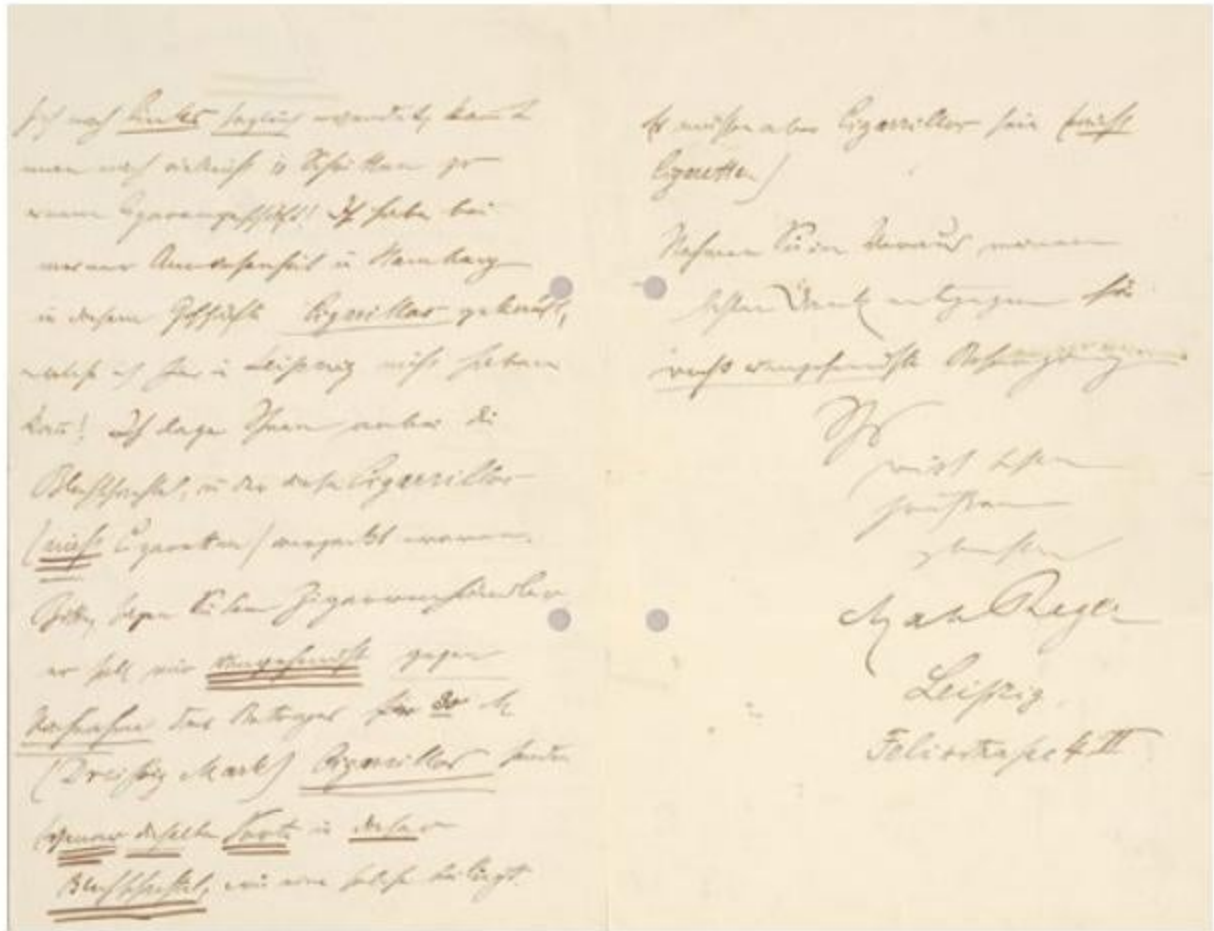 sich nach links sogleich wendet, kommt
man nach vielleicht 10 Schritten zu
einem Cigarrengeschäft! Ich habe bei
meiner Anwesenheit in Hamburg
in diesem Geschäfte Cigarillos gekauft,
welche ich hier in Leipzig nicht haben
kann! Ich lege Ihnen anbei die
Blechschachtel, in der diese Cigarillos
(nicht Cigaretten) verpackt waren.
Bitte, sagen Sie dem Zigarrenhändler
er soll mir umgehendst gegen
Nachnahme des Betrages für 30 M
(Dreißig Mark) Cigarillos senden
(genau dieselbe Sorte in dieser
Blechschachtel, wie eine solche beiliegt.
Es müssen aber Cigarillos sein (nicht
Cigaretten)
Nehmen Sie im Voraus meinen
besten Dank entgegen für
recht umgehendste Besorgung
Ihr
mit besten
Grüßen
Max Reger
Leipzig
Felixstraße 4 II